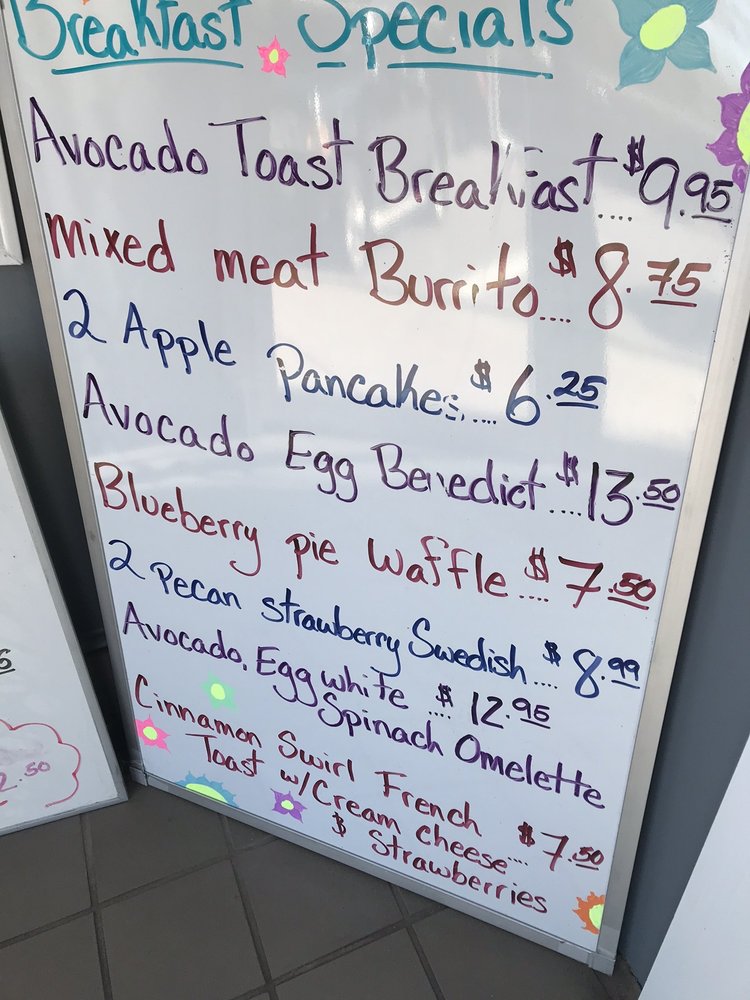 Breakfast Specials
Avocado Toast Breakfast....$9.95
mixed meat Burrito....$8.75
2 Apple Pancakes....$6.25
Avocado Egg Benedict....$13.50
Blueberry pie waffle....$7.50
2 pecan strawberry Swedish....$8.99
Avocado, Egg white....$12.95
Spinach Omelette
Cinnamon Swirl French
Toast w/Cream cheese....$7.50
$ Strawberries
2.50